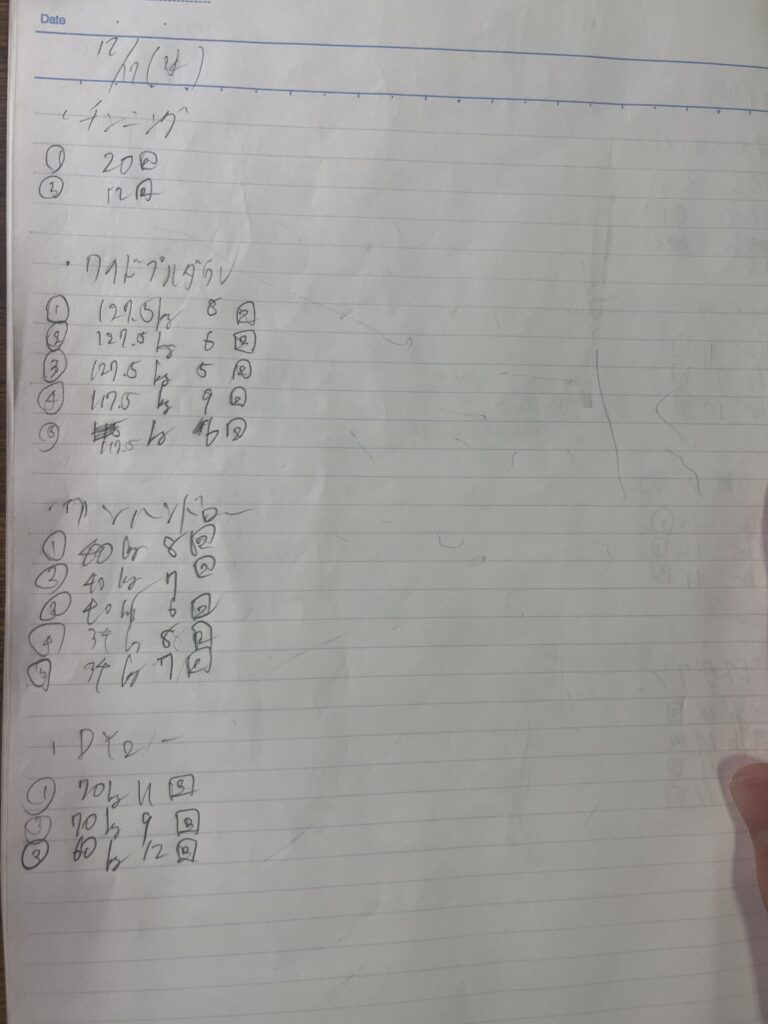 Date
12/17(水)
・チンニング
① 20回
② 12回
・ワイドプルダウン
① 127.5kg 8回
② 127.5kg 6回
③ 127.5kg 5回
④ 117.5kg 9回
⑤ 117.5kg 6回
・ワンハンドロー
① 40kg 8回
② 40kg 7回
③ 40kg 6回
④ 34kg 8回
⑤ 34kg 7回
① 70kg 11回
② 70kg 9回
③ 60kg 12回